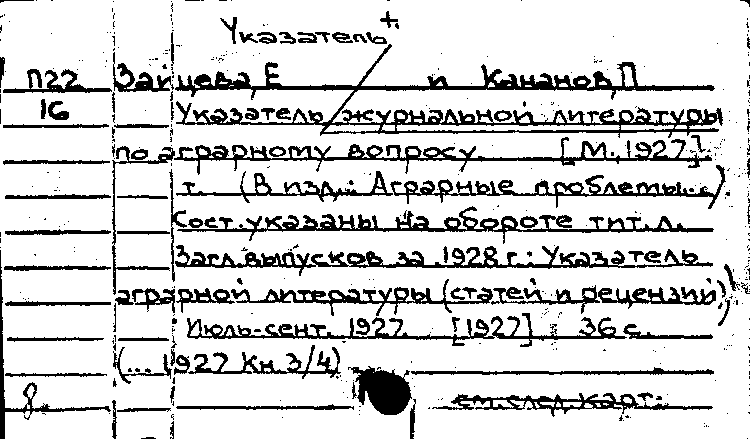 Указатель +.
П22 Зайцева, Е и Кананов, П
16 Указатель журнальной литературы
по аграрному вопросу. [М., 1927].
т. (В изд.: Аграрные проблемы...).
Сост. указаны на обороте тит. л.
Загл. выпусков за 1928 г.: Указатель
аграрной литературы (статей и рецензий)
Июль-сент. 1927. [1927] 36 с.
(... 1927 Кн. 3/4)
8. см. след. карт.